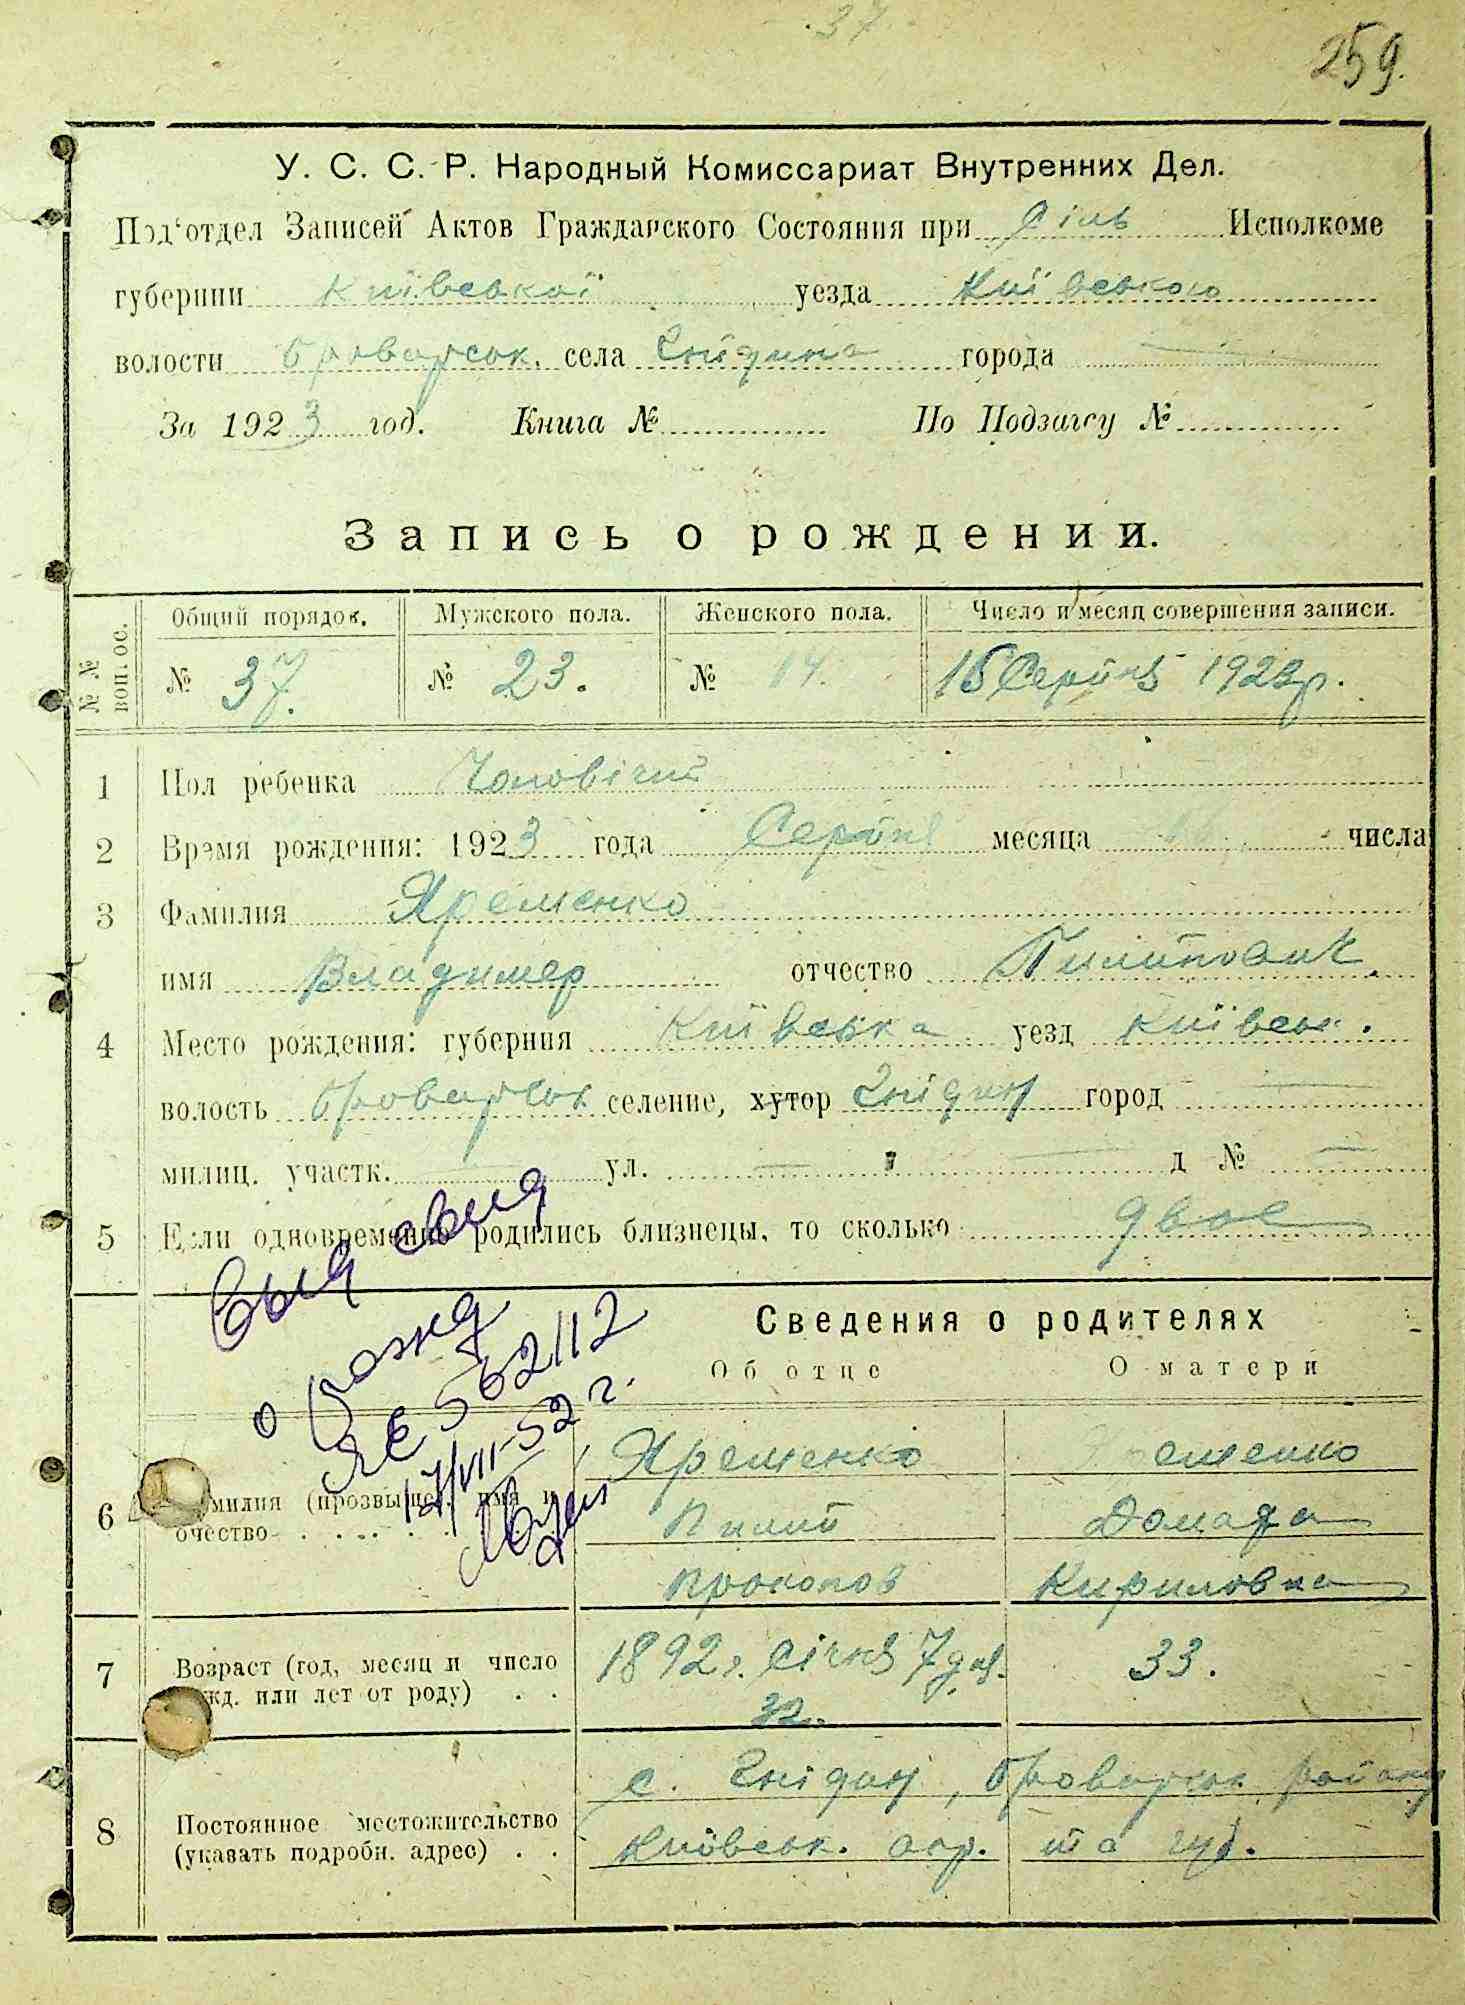 37
259.
У. С. С. Р. Народный Комиссариат Внутренних Дел.
Под'отдел Записей Актов Гражданского Состояния при Сіль Исполкоме
губернии Київської уезда Київського
волости Броварськ. села Гнідина города —
За 1923 год. Книга № По Подзагсу №
Запись о рождении.
№ № вопрос. Общий порядок. Мужского пола. Женского пола. Число и месяц совершения записи.
№ 37. № 23. № 14. 15 Серпня 1923 р.
1 Пол ребенка Чоловічий
2 Время рождения: 1923 года Серпня месяца числа
3 Фамилия Яременко
имя Владимер отчество Пилипович
4 Место рождения: губерния Київська уезд Київськ.
волость Броварськ селение, хутор Гнідин город —
милиц. участк. — ул. — — д № —
5 Если одновременно родились близнецы, то сколько двое
Сведения о родителях
Об отце О матери
6 Фамилия (прозвище), имя и отчество
Яременко еменко
Пилип Домаха
Прокопов Кириловна
7 Возраст (год, месяц и число рожд. или лет от роду) . .
1892 г. січня 7 дня. 33.
8 Постоянное местожительство (указать подробн. адрес) . .
с. Гнідин, Броварськ. району
Київськ. окр. та губ.
о рожд
ЯЄ 562112
17/VII-52 г.